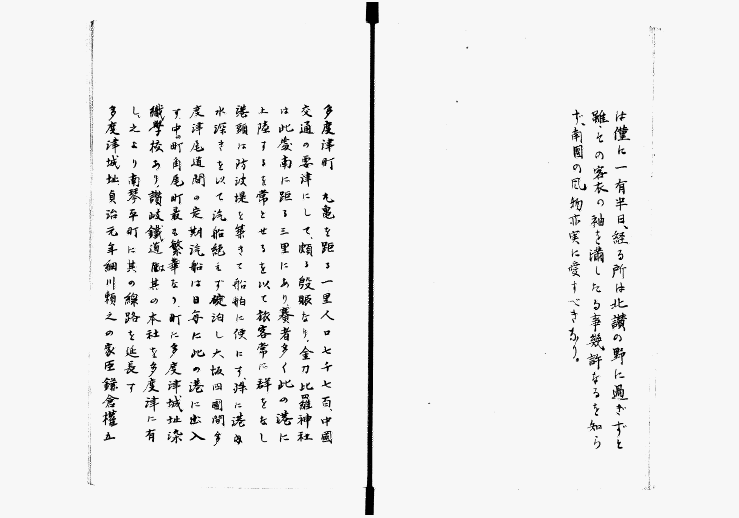 は僅に一有半日、経る所は北讃の野に過ぎずと
雖、その客衣の袖を満したる事幾許なるを知ら
ず、南国の風物亦実に愛すべきなり。
多度津町　丸亀を距る一里人口七千七百、中国
交通の要津にして、頗る殷賑なり、金刀比羅神社
は此處南に距る三里にあり、賽者多く此の港に
上陸するを常とせるを以て旅客常に群をなし
港頭は防波堤を築きて船舶に便にす、殊に港内
水深きを以て汽船絶えず碇泊し大坂四國間多
度津尾道間の定期汽船は日毎に此の港に出入
す、中の町角尾町最も繁華なり、町に多度津城址染
織學校あり、讃岐鐵道は其の本社を多度津に有
し、之より南琴平町に其の線路を延長す
多度津城址、貞治元年細川頼之の家臣鎌倉權五